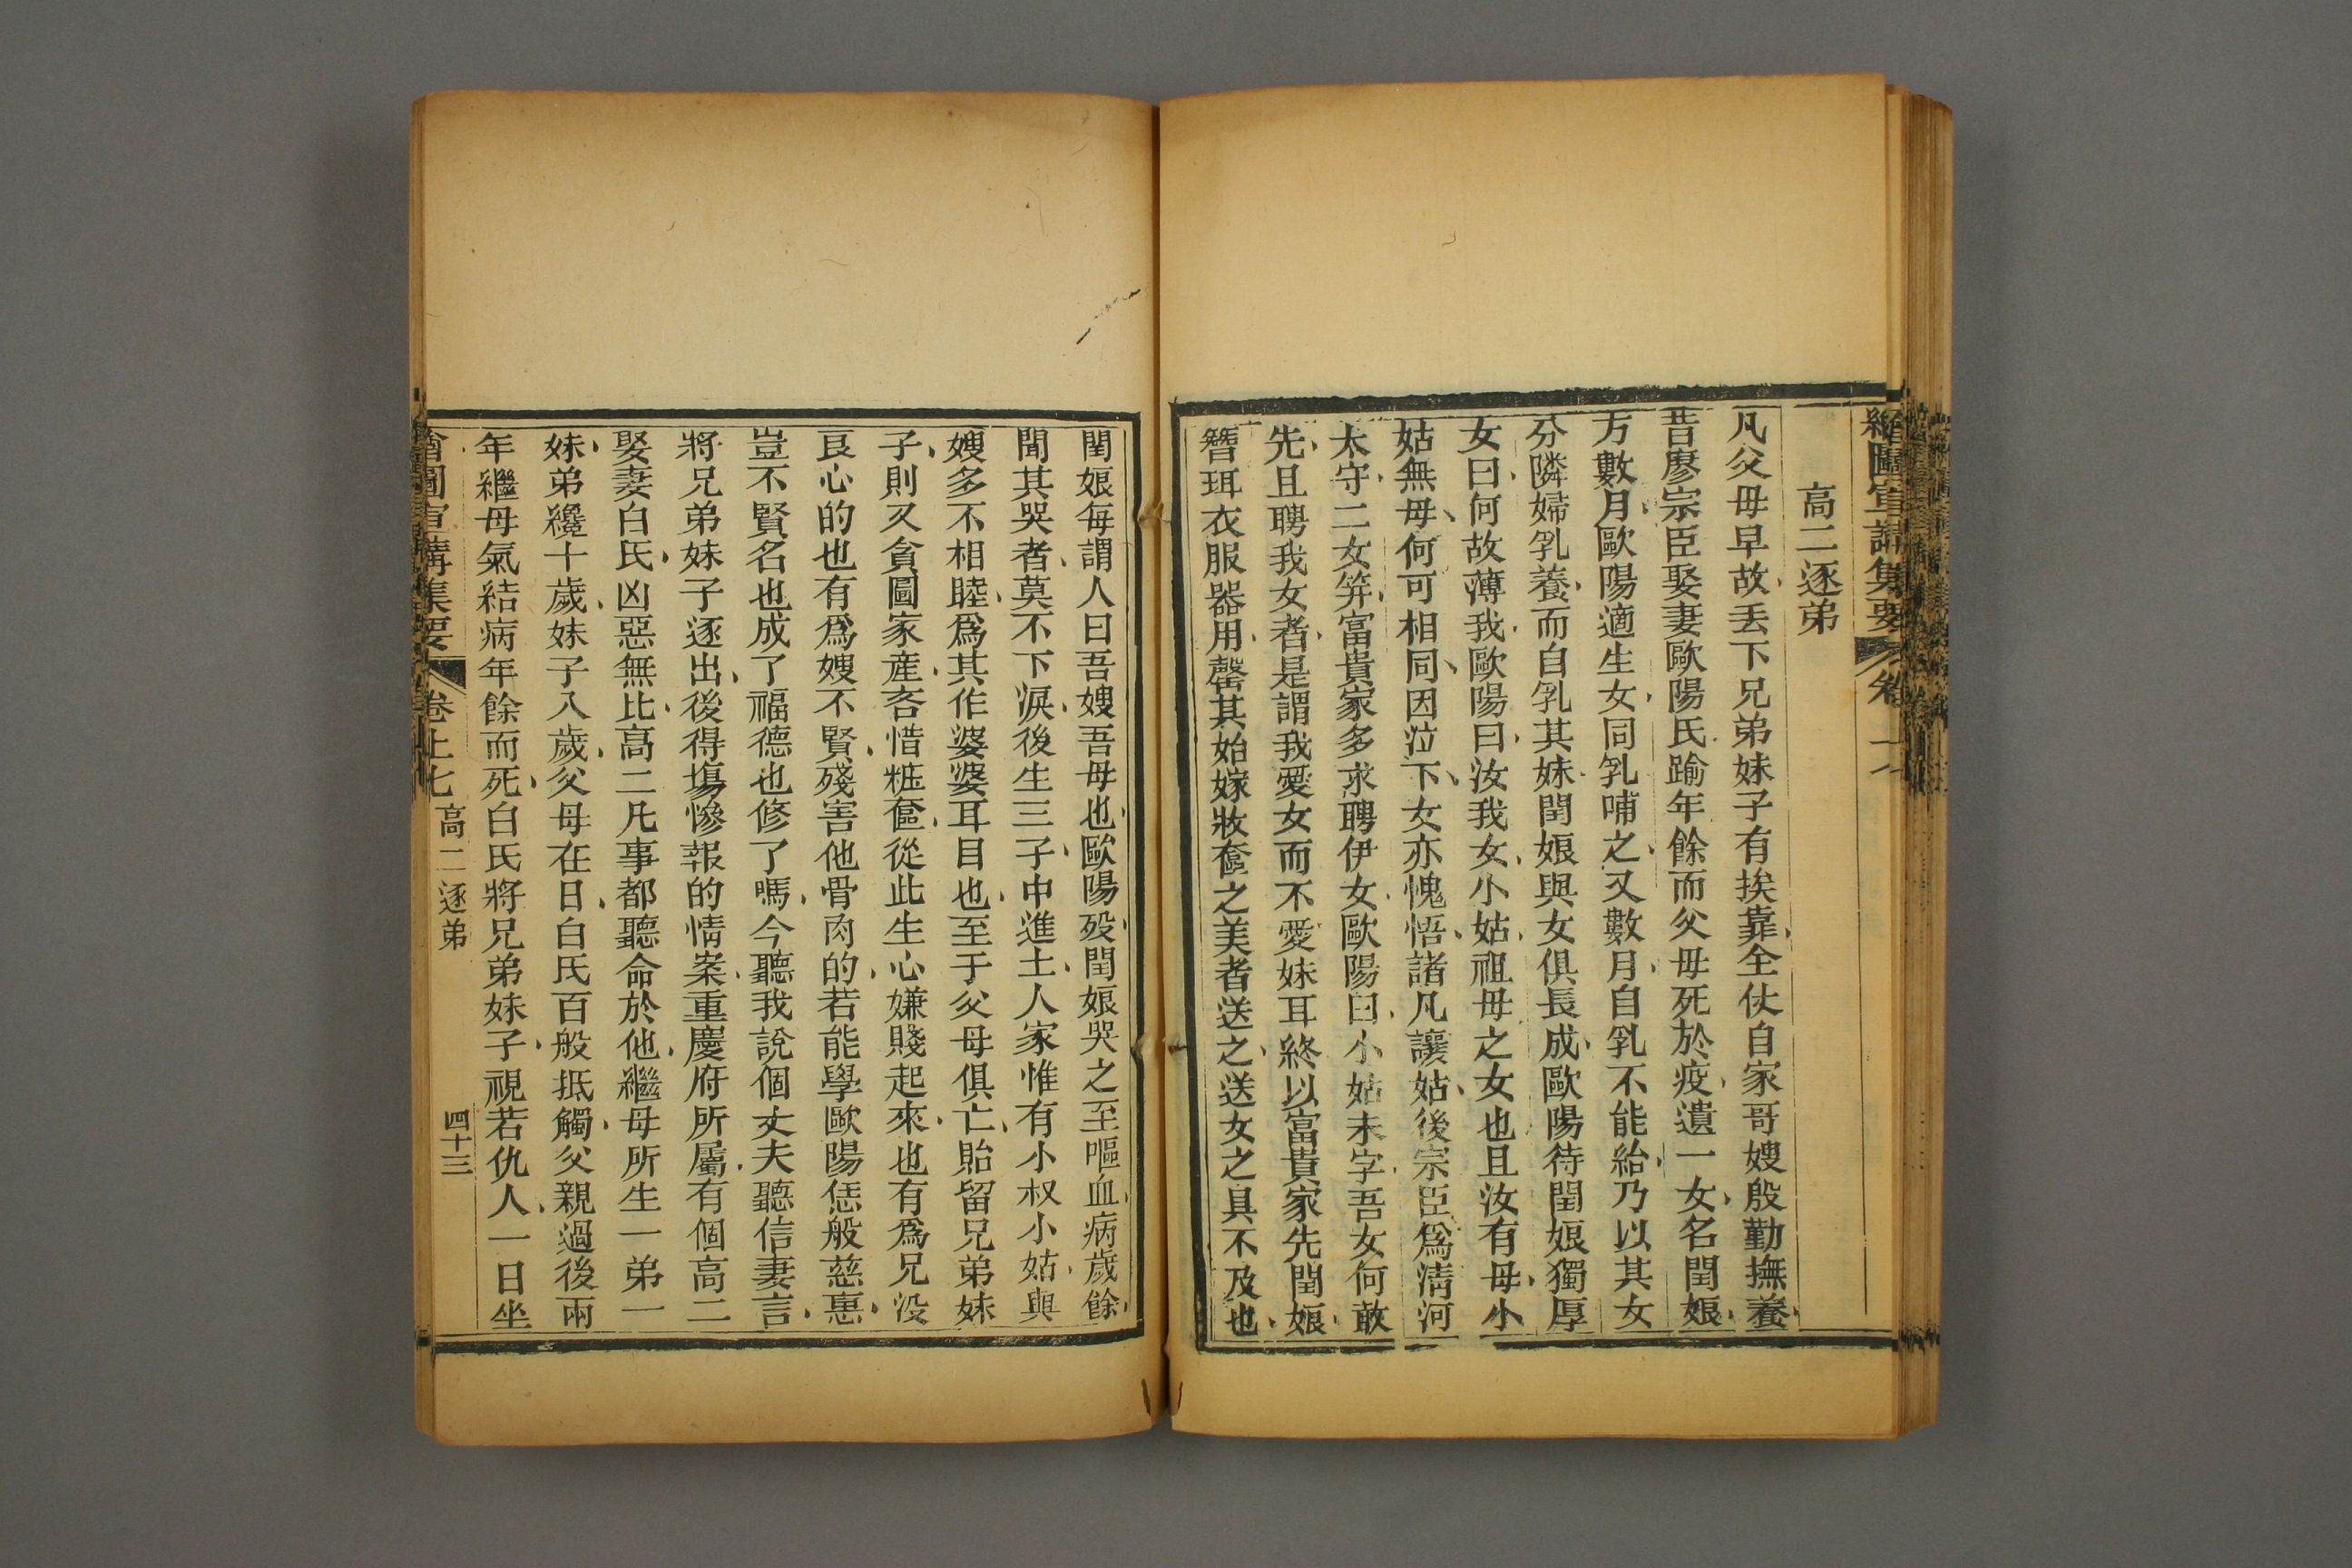 繪圖宣講集要 卷
高二逐弟
凡父母早故、丢下兄弟妹子有挨靠、全仗自家哥嫂殷勤撫養、
昔廖宗臣娶妻歐陽氏踰年餘而父母死於疫、遺一女、名閏娘、
方數月、歐陽適生女、同乳哺之、又數月、自乳不能給、乃以其女
分隣婦乳養、而自乳其妹閏娘與女俱長成、歐陽待閏娘獨厚
女曰、何故薄我、歐陽曰、汝我女、小姑、祖母之女也且汝有母、小
姑無母、何可相同、因泣下、女亦愧悟、諸凡讓姑、後宗臣爲清河
太守、二女笄、富貴家多求聘伊女、歐陽曰、小姑未字、吾女何敢
先、且聘我女者、是謂我愛女而不愛妹耳終以富貴家先閏娘、
簪珥衣服器用、罄其始嫁妝奩之美者送之、送女之具不及也、
閏娘每謂人曰吾嫂吾母也、歐陽歿、閏娘哭之至嘔血、病歲餘、
聞其哭者、莫不下淚、後生三子、中進士、人家惟有小叔小姑、與
嫂多不相睦、爲其作婆婆耳目也、至于父母俱亡、貽留兄弟妹
子、則又貪圖家産、吝惜粧奩、從此生心嫌賤起來、也有爲兄没
良心的也有爲嫂不賢、殘害他骨肉的、若能學歐陽恁般慈惠、
豈不賢名也成了福德也修了嗎、今聽我說個丈夫聽信妻言、
將兄弟妹子逐出、後得塲慘報的情案、重慶府所屬、有個高二
娶妻白氏、凶惡無比、高二凡事都聽命於他、繼母所生一弟一
妹、弟纔十歲、妹子八歲、父母在日、白氏百般抵觸、父親過後兩
年繼母氣結病年餘而死、白氏將兄弟妹子、視若仇人、一日坐
繪圖宣講集要 卷七 高二逐弟 四十三